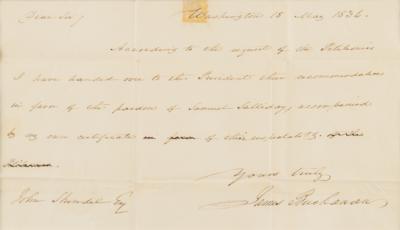 Dear Sir/ Washington 18 May 1836.
According to the request of the Petitioners
I have handed over to the President their recommendation
in favor of the pardon of Samuel Salliday, accompanied
by my own certificate in favor of their respectability of the
Yours truly
John Shindel Esq James Buchanan